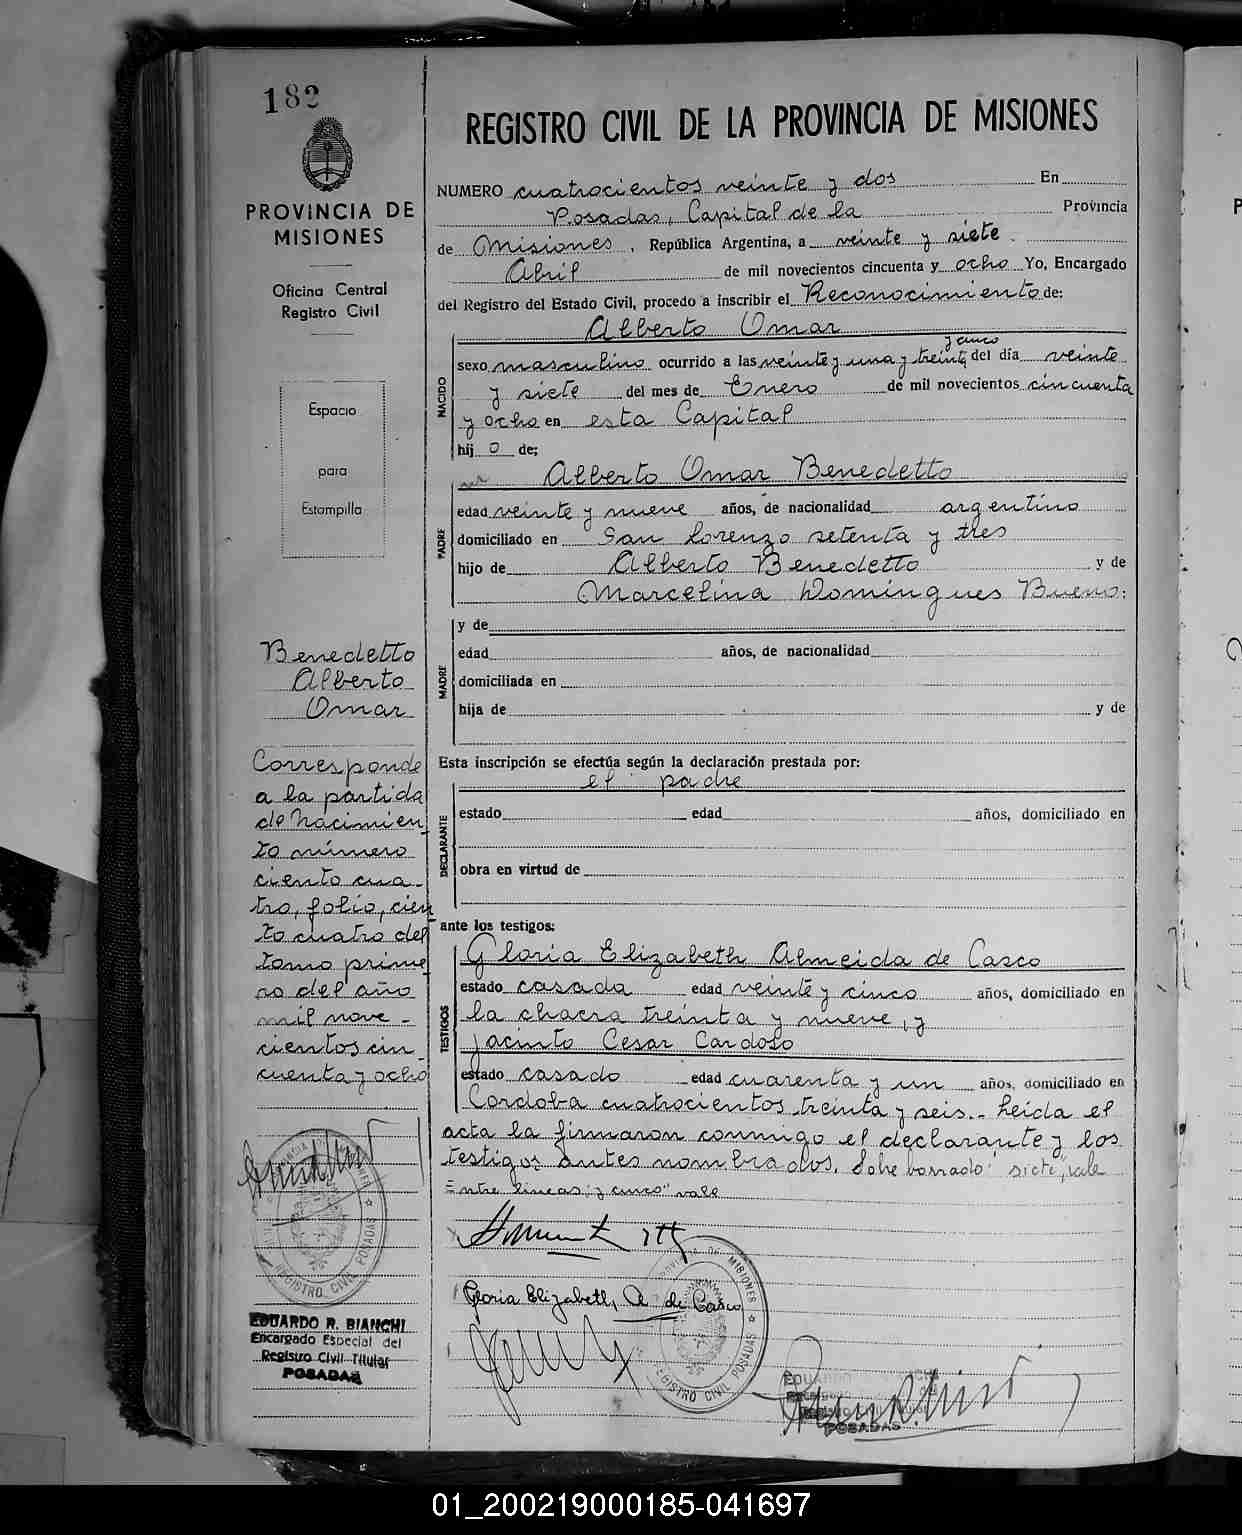 182
PROVINCIA DE
MISIONES
Oficina Central
Registro Civil
Espacio
para
Estampilla
Benedetto
Alberto
Omar
Corresponde
a la partida
de Nacimien-
to número
ciento cua-
tro, folio, cien
to cuatro del
tomo prime-
ro del año
mil nove-
cientos cin-
cuenta y ocho
REGISTRO CIVIL POSADAS
EDUARDO R. BIANCHI
Encargado Especial del
Registro Civil Titular
POSADAS
REGISTRO CIVIL DE LA PROVINCIA DE MISIONES
NUMERO cuatrocientos veinte y dos En
Posadas, Capital de la Provincia
de Misiones, República Argentina, a veinte y siete
Abril de mil novecientos cincuenta y ocho Yo, Encargado
del Registro del Estado Civil, procedo a inscribir el Reconocimiento de:
Alberto Omar
NACIDO
y cinco
sexo masculino ocurrido a las veinte y una y treinta del día veinte
y siete del mes de Enero de mil novecientos cincuenta
y ocho en esta Capital
hij o de;
Alberto Omar Benedetto
PADRE
edad veinte y nueve años, de nacionalidad argentino
domiciliado en San Lorenzo setenta y tres
hijo de Alberto Benedetto y de
Marcelina Domingues Bueno:
MADRE
y de
edad años, de nacionalidad
domiciliada en
hija de y de
Esta inscripción se efectúa según la declaración prestada por:
el padre
DECLARANTE
estado edad años, domiciliado en
obra en virtud de
ante los testigos:
Gloria Elizabeth Almeida de Casco
TESTIGOS
estado casada edad veinte y cinco años, domiciliado en
la chacra treinta y nueve, y
Jacinto Cesar Cardoso
estado casado edad cuarenta y un años, domiciliado en
Cordoba cuatrocientos treinta y seis.- Leida el
acta la firmaron conmigo el declarante y los
testigos antes nombrados. Sobre borrado: "siete", vale
Entre lineas "y cinco" vale
Gloria Elizabeth A. de Casco
PROVINCIA DE MISIONES REGISTRO CIVIL POSADAS
POSADAS
01_200219000185-041697